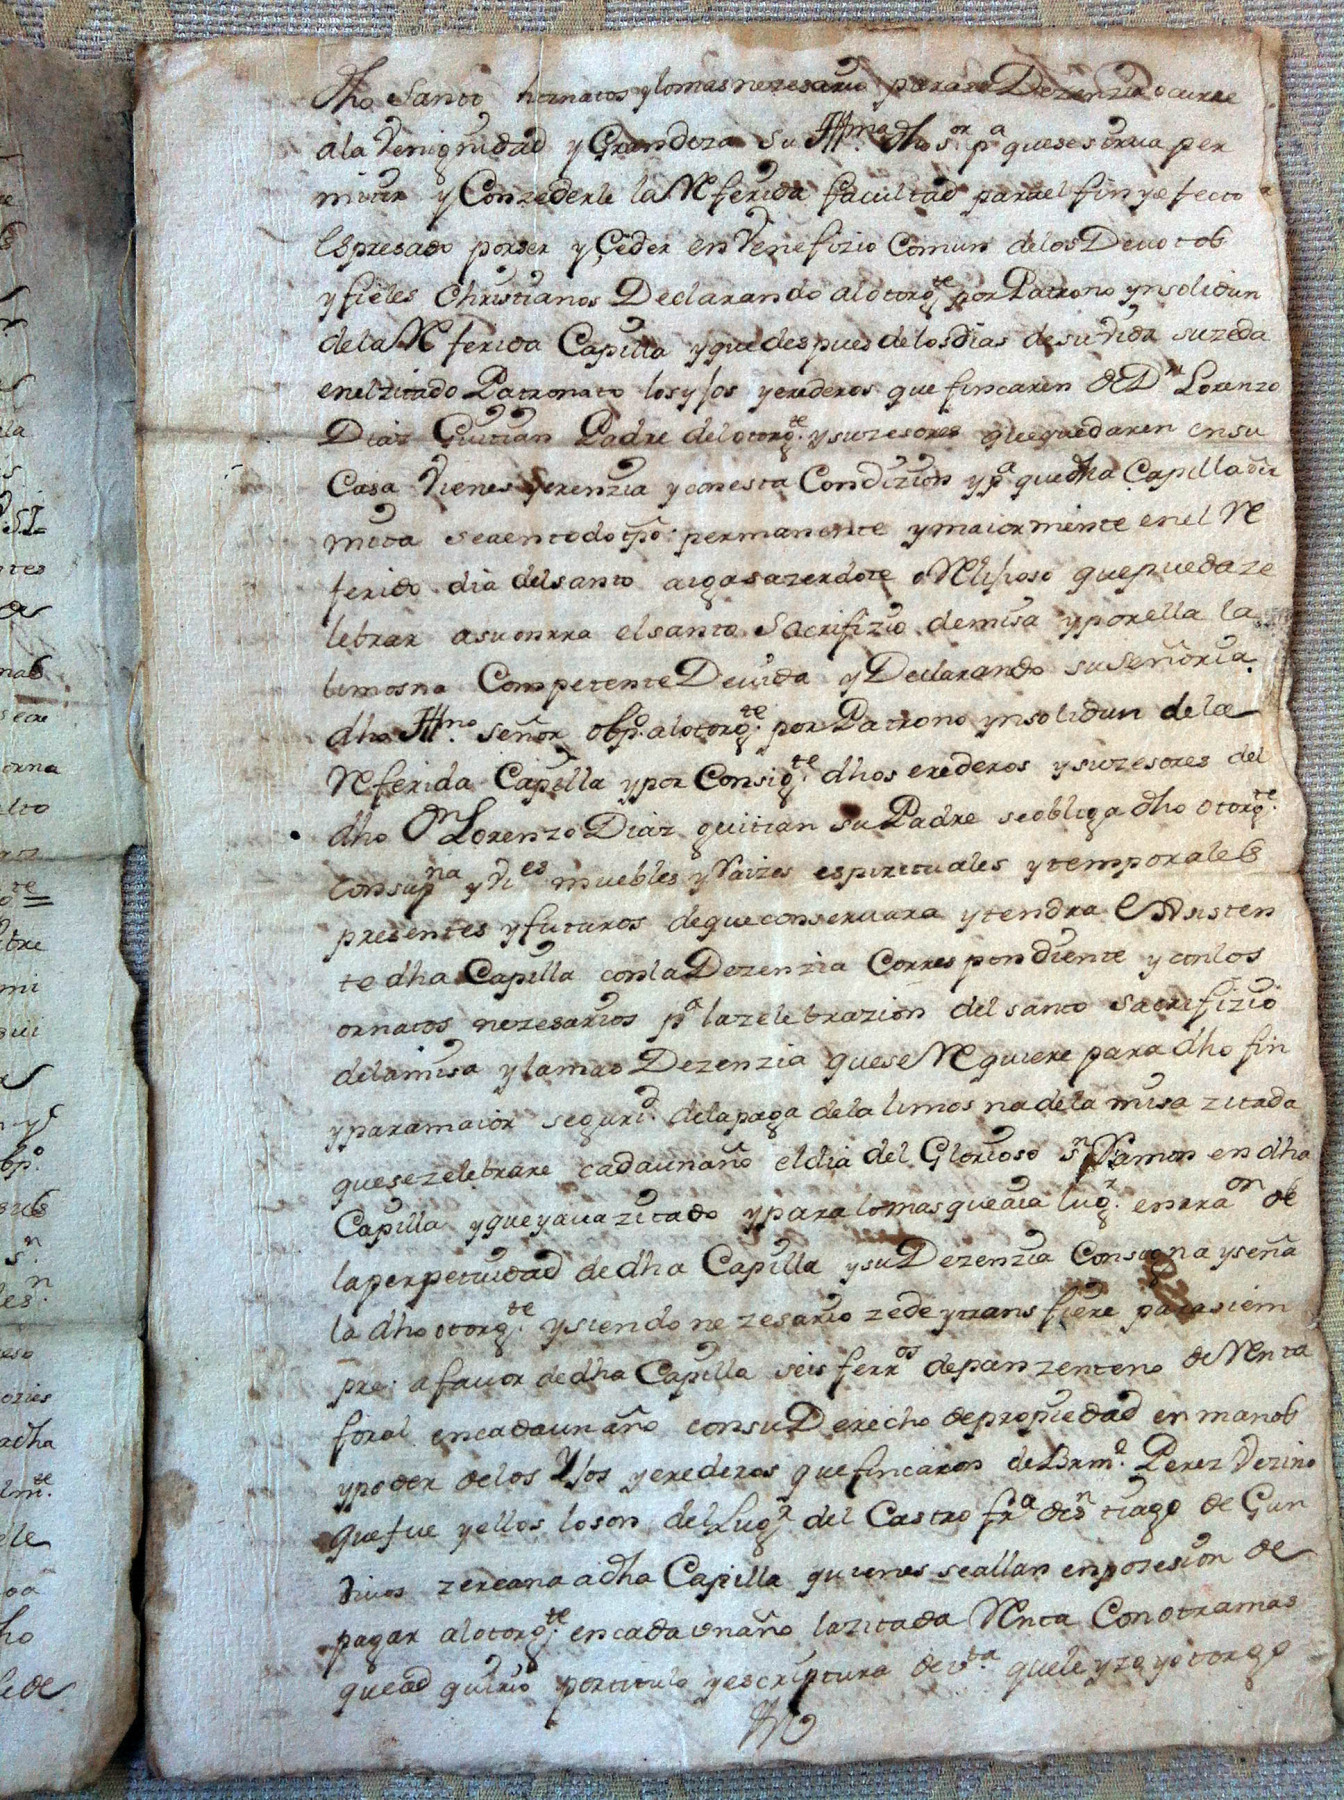 dho Santo hornatos ylomas nezesario para su Dezenzia ocurre
ala Venignidad y Grandeza su Yllma dho sor pa quese sirua per
mitir y Conzederle la Referida facultad parael fin y efecto
Espresado por ser y Çeder en Venefizio Comun delos Deuotos
y fieles Christianos Declarando al otorgte por Patrono ynsolidun
dela Referida Capilla y que despues delos dias de su vida suzeda
enel zitado Patronato los yjos yerederos que fincaren de Dn Lorenzo
Diaz Guitian Padre del otorgte y suzesores que quedaren en su
Casa Vienes yerenzia y con esta Condizion y pa que dha Capilla
mita sea en todo tpo: permanente y maiormente enel Re
ferido dia del santo aiga sazerdote o Relijioso que pueda ze
lebrar a su onrra el santo Sacrifizio de misa y por ella la
limosna Competente Deuida y Declarando su Señoria
dho Yllmo señor obpo. al otorgte por Patrono ynsolidun dela
Referida Capilla y por Consigte dhos erederos y suzesores del
dho Dn Lorenzo Diaz guitian su Padre se obliga dho otorgte
con su pna y vies muebles y Raizes espirituales y temporales
presentes y futuros de que conseruara y tendra Existen
te dha Capilla con la Dezenzia Correspondiente y con los
ornatos nezesarios pa la zelebrazion del santo Sacrifizio
dela misa y la mas Dezenzia que se Requiere para dho fin
y para maior segurid. dela paga dela limosna dela misa zitada
que se zelebrare cada un año el dia del Glorioso Sn Ramon en dha
Capilla y que ya ua zitado y para lo mas que aia lugr. en rraon de
la perpetuidad de dha Capilla y su Dezenzia Consigna y seña
la dho otorgte y siendo nezesario zede y transfiere para siem
pre: a fauor de dha Capilla seis ferros de pan zenteno de Renta
foral en cada un año con su Derecho de propiedad en manos
y poder delos Yjos y erederos que fincaron de Barme. Perez Vezino
que fue y ellos lo son del Lugr del Castro fra de sn tiago de Gun
diuos zercana a dha Capilla quienes se allan en posesion de
pagar al otorgte en cada un año la zitada Renta Con otra mas
que ad quirio por titulo y escriptura de vta que le yzo y otorgo